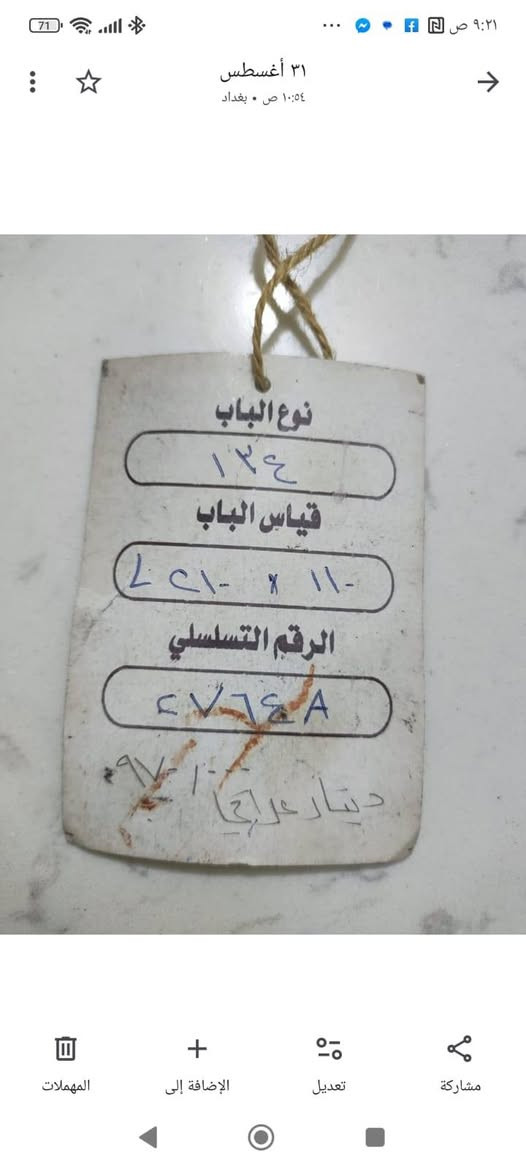 ٩:٢١ ص
71
٣١ أغسطس
١٠:٥٤ ص • بغداد
نوع الباب
١٣٤
قياس الباب
١١٠ x ٢١٠ L
الرقم التسلسلي
٢٧٦٤٨
دينار عراقي
مشاركة
تعديل
الإضافة إلى
المهملات